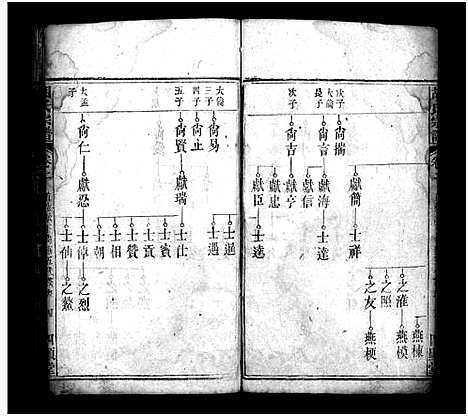 次子
尚揣
大倫
長子
尚言
次子
尚吉
獻簡
獻海
獻信
獻亨
獻忠
獻臣
士祥
士達
士逵
之淮
之照
之友
燕棟
燕模
燕梗
大倫
三子
尚易
四子
尚止
五子
尚賢
大孟
子
尚仁
獻瑞
獻忍
士通
士遇
士仕
士賓
士贊
士相
士朝
士倬
士仙
之烈
之鰲